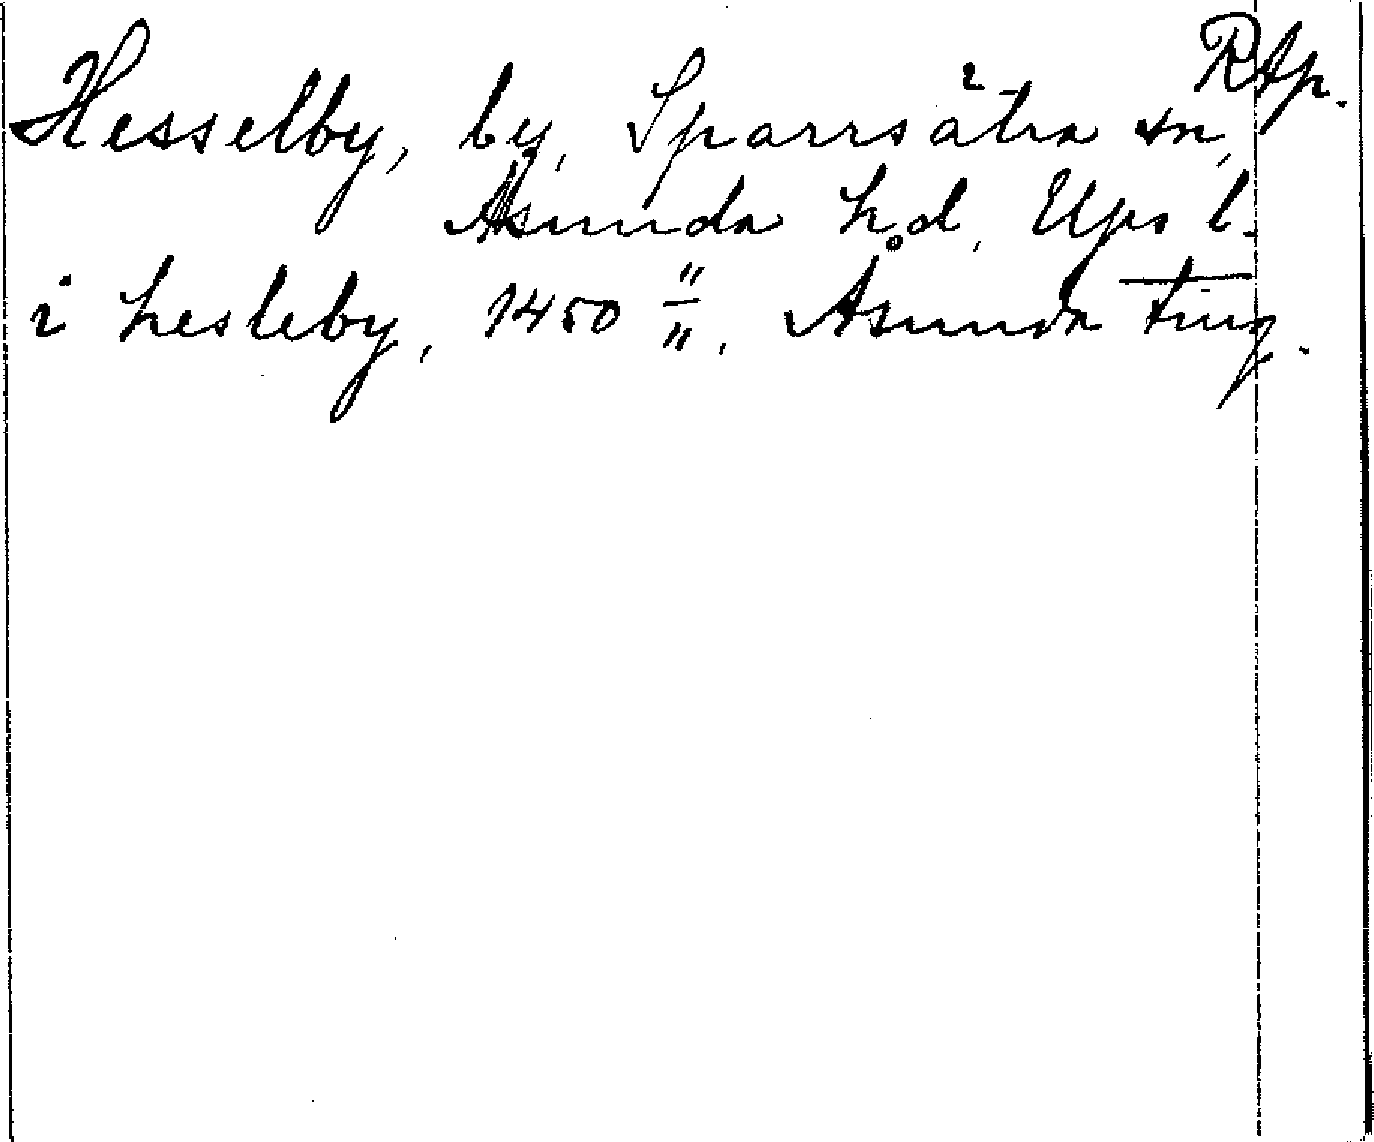 Rap.
Hesselby, by, Sparrsätra sn,
Åsunda hd, Ups l.
i hesleby, 1450 "/", Åsunda ting.